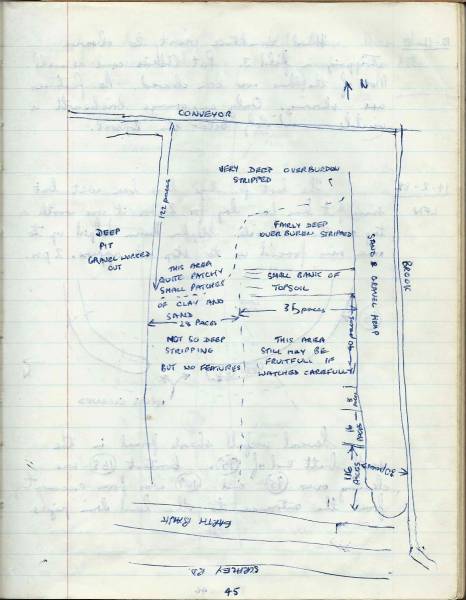 N
CONVEYOR
VERY DEEP OVERBURDEN
STRIPPED
122 paces
DEEP
PIT
GRAVEL WORKED
OUT
FAIRLY DEEP
OVERBUREN STRIPPED
SAND & GRAVEL HEAP
BROOK
THIS AREA
QUITE PATCHY
SMALL PATCHES
OF CLAY AND
SAND
SMALL BANK OF
TOPSOIL
35 paces
28 PACES
40 PACES
NOT SO DEEP
STRIPPING
BUT NO FEATURES
THIS AREA
STILL MAY BE
FRUITFULL IF
WATCHED CAREFULLY
PACES
116
PACES
30 paces
EARTH BANK
RD.
45